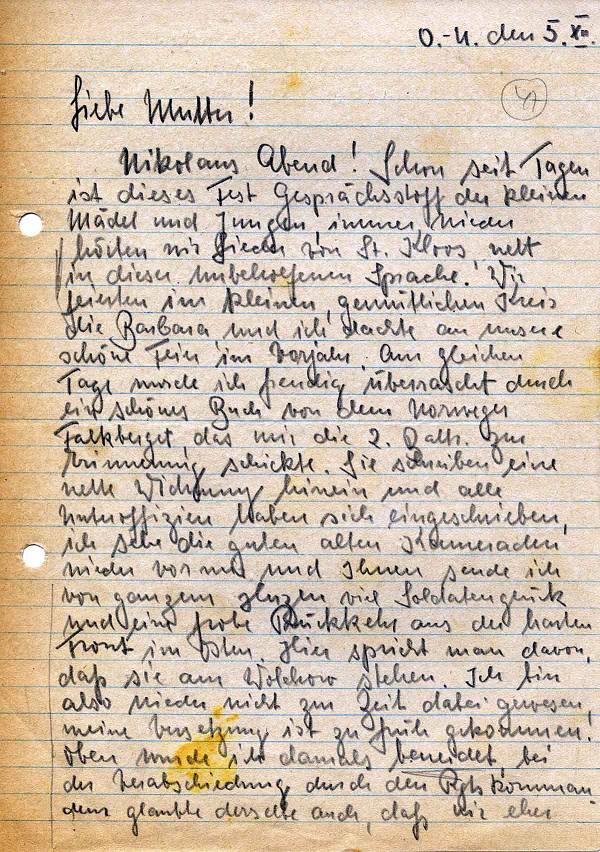 O.-U. den 5. XII.
Liebe Mutter!
Nikolaus Abend! Schon seit Tagen
ist dieses Fest Gesprächsstoff der kleinen
Mädel und Jungen, immer wieder
hörten wir Lieder von St. Kloos, nett
in dieser unbeholfenen Sprache. Wir
feierten im kleinen, gemütlichen Kreis
die Barbara und ich dachte an unsere
schöne Feier im Vorjahr. Am gleichen
Tage wurde ich freudig überrascht durch
ein schönes Buch von dem Norweger
Falkberget das mir die 2. Battr. zur
Erinnerung schickte. Sie schreiben eine
nette Widmung hinein und alle
Unteroffiziere haben sich eingeschrieben,
ich sehe die guten alten Kameraden
wieder vor mir und Ihnen sende ich
von ganzem Herzen viel Soldatenglück
und eine frohe Rückkehr aus der harten
Front im Osten. Hier spricht man davon,
daß sie am Wolchow stehen. Ich bin
also wieder nicht zur Zeit dabei gewesen,
meine Versetzung ist zu früh gekommen!
Oben wurde ich damals beneidet, bei
der Verabschiedung durch den Rgts Komman-
deur glaubte derselbe auch, daß wir eher